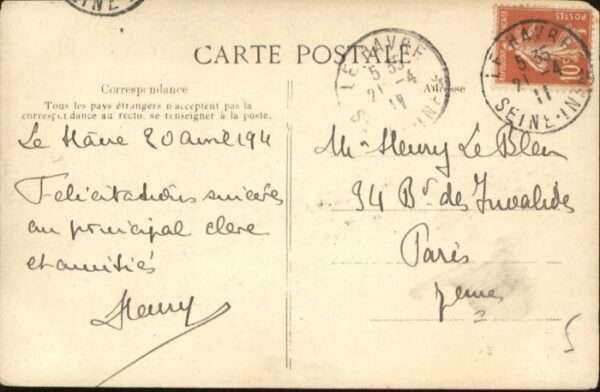 SEINE-IN
CARTE POSTALE
Correspondance
Tous les pays étrangers n'acceptent pas la
correspondance au recto, se renseigner à la poste.
Adresse
LE HAVRE
5 55
21 -4
11
SEINE-INF
LE HAVRE
5 55
21 -4
11
SEINE-INF
POSTES
10
Le Havre 20 avril 1911
Félicitations sincères
au principal clerc
et amitiés
Henry
Mr Henry Le Bleu
34 Bd des Invalides
Paris
7eme